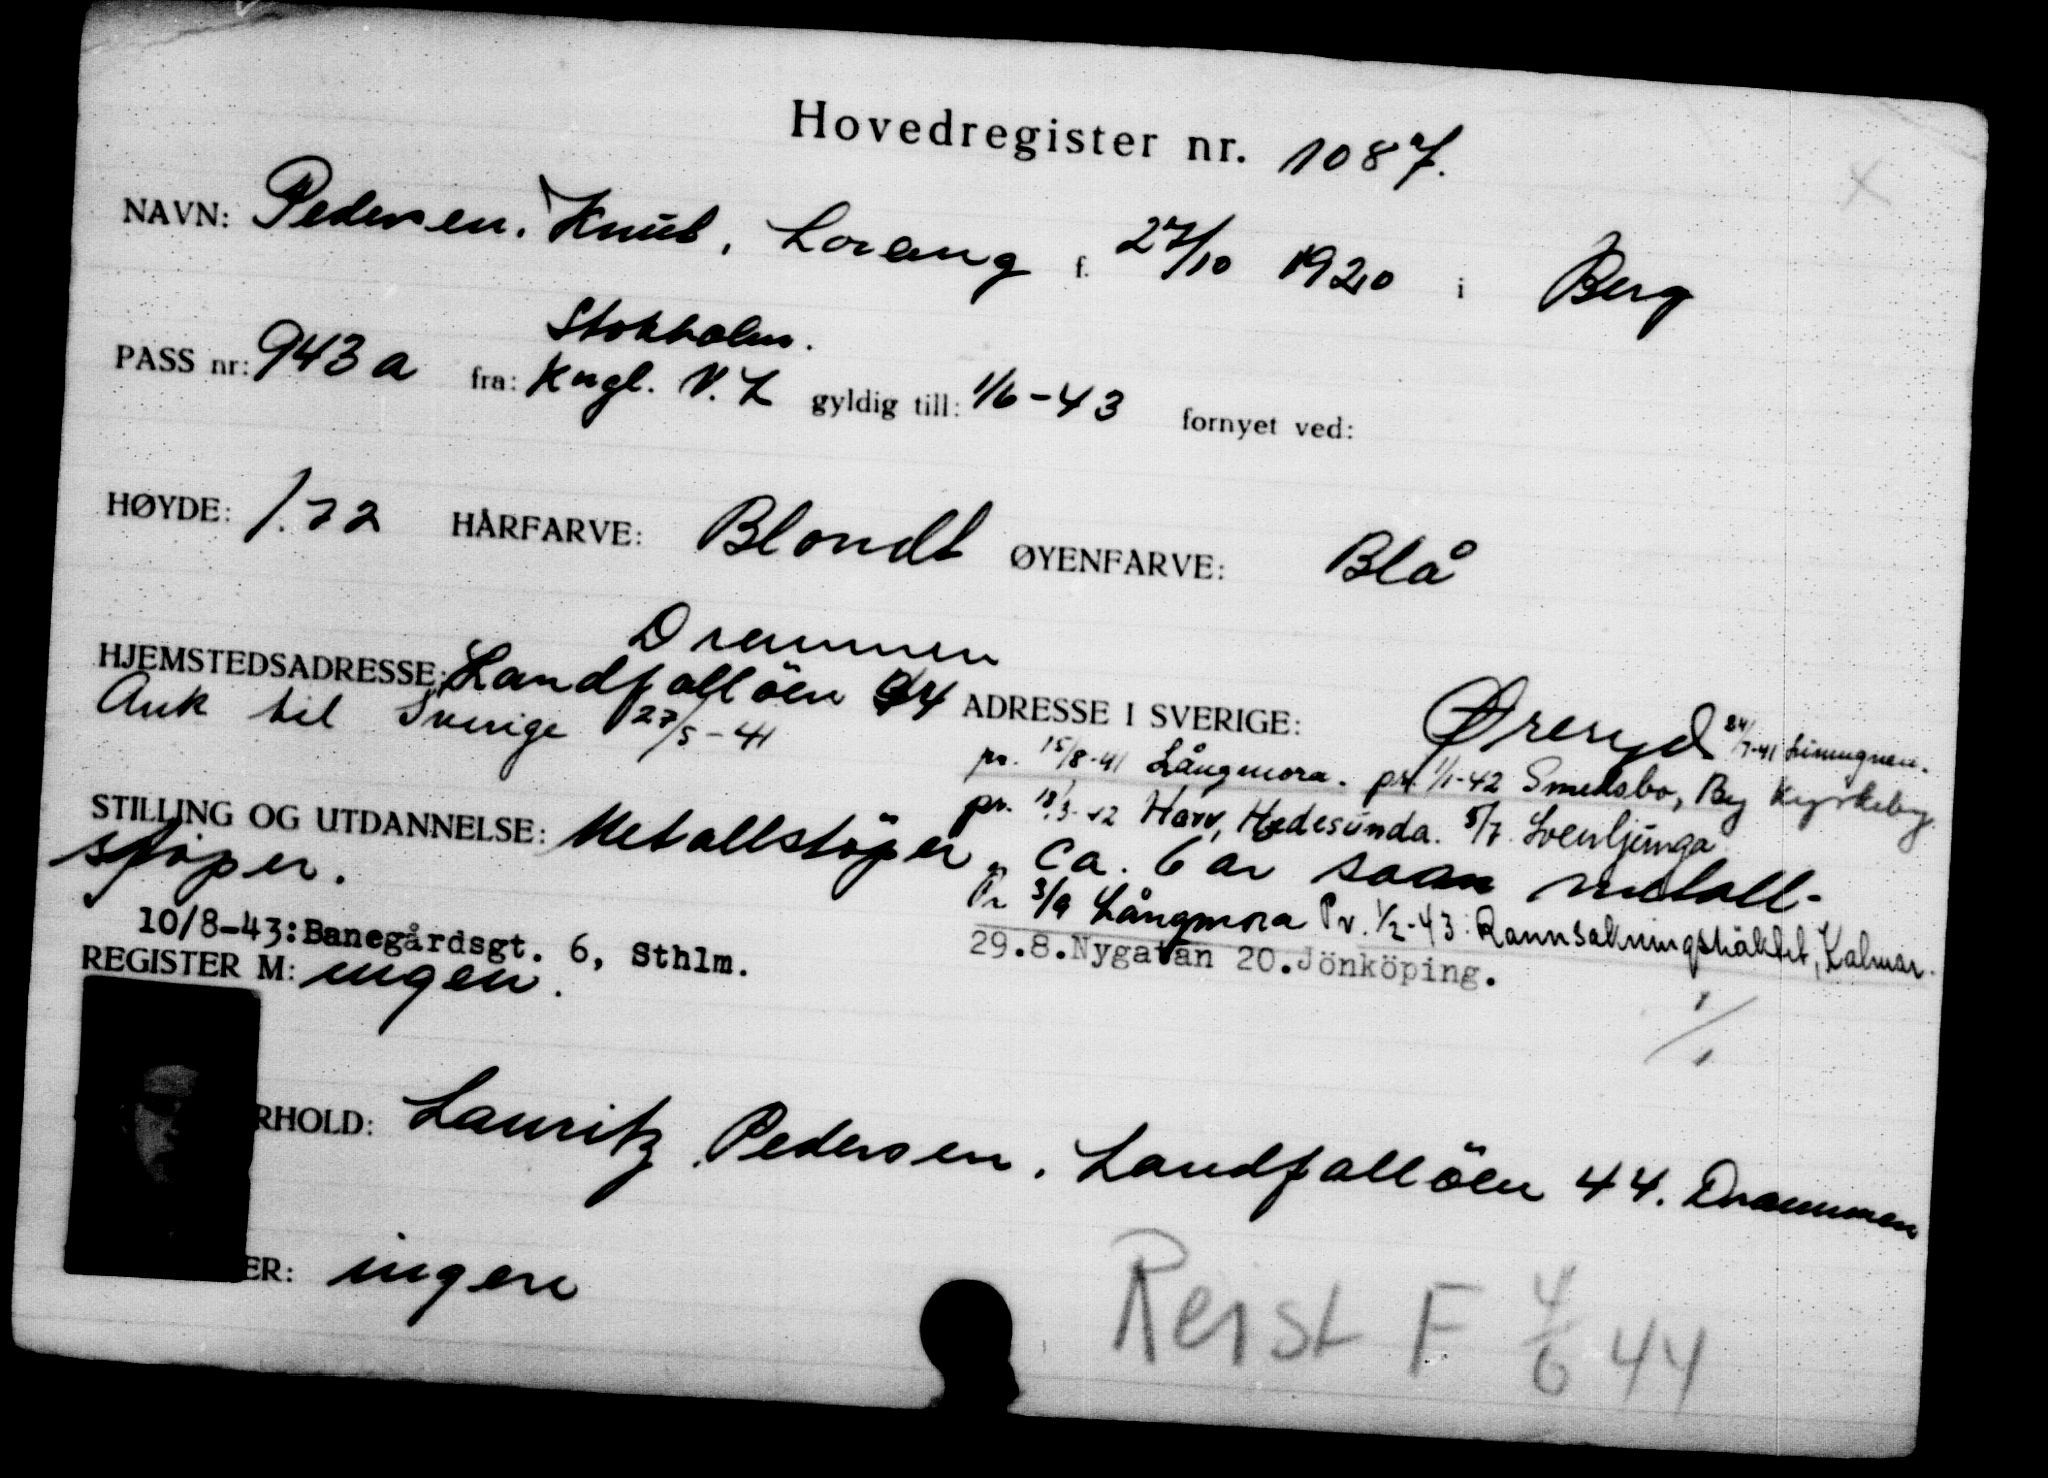 Hovedregister nr. 1087.
NAVN: Pedersen. Knut, Lorang f. 27/10 1920 i Berg
Stokholm.
PASS nr: 943a fra: Kngl. N. L gyldig till: 1/6-43 fornyet ved:
HØYDE: 1.72 HÅRFARVE: Blondt ØYENFARVE: Blå
Drammen
HJEMSTEDSADRESSE: Landfallöen 44 ADRESSE I SVERIGE: Øreryd 24/7-41
Ank til Sverige 27/5-41
pr. 15/8-41 Långmora. pr. 1/1-42 Smedsbo, By Kyrkeby.
pr. 18/3-42 Harv, Hedesunda. 5/7 Svenljunga
STILLING OG UTDANNELSE: Metallstöper. Ca. 6 år saan metall-
stöper.
Pr 3/9 Långmora Pr. 1/2-43: Rannsakningshäktet, Kalmar.
10/8-43: Banegårdsgt. 6, Sthlm.
29.8. Nygatan 20. Jönköping.
REGISTER M: ingen.
1/1
RHOLD: Lauritz Pedersen. Landfallöen 44. Drammen
ER: ingen
Reist F 4/6 44